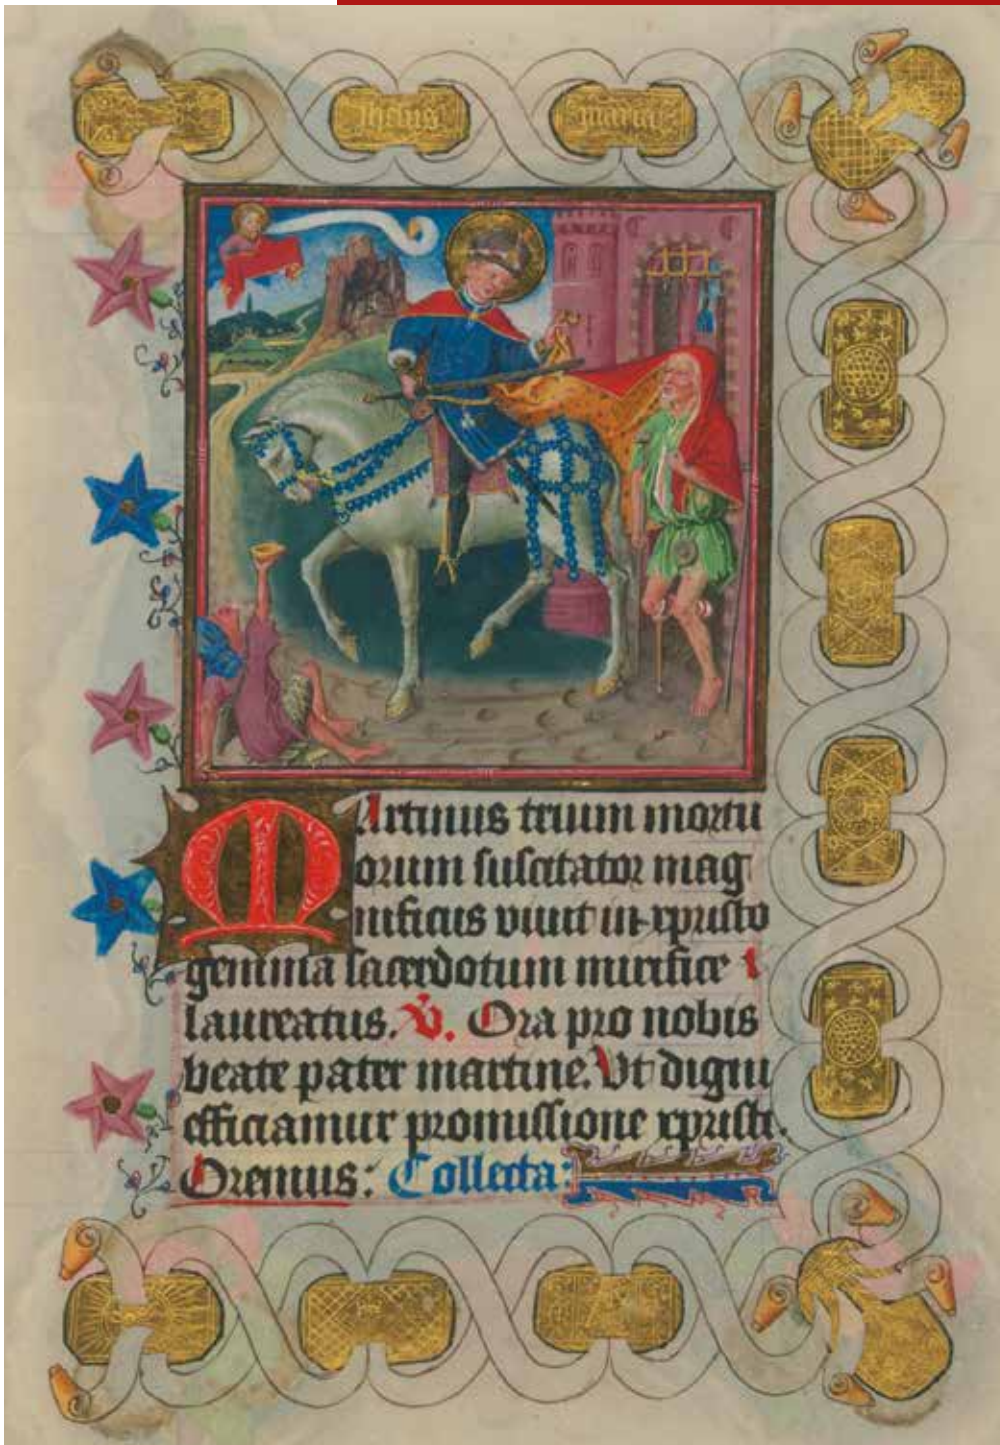 ihesus
maria
Martinus trium mortu
orum suscitator mag
nificus viuit in xpristo
gemma sacerdotum mirifice
laureatus. V. Ora pro nobis
beate pater martine. Vt digni
efficiamur promissione xpristi.
Oremus: Collecta: